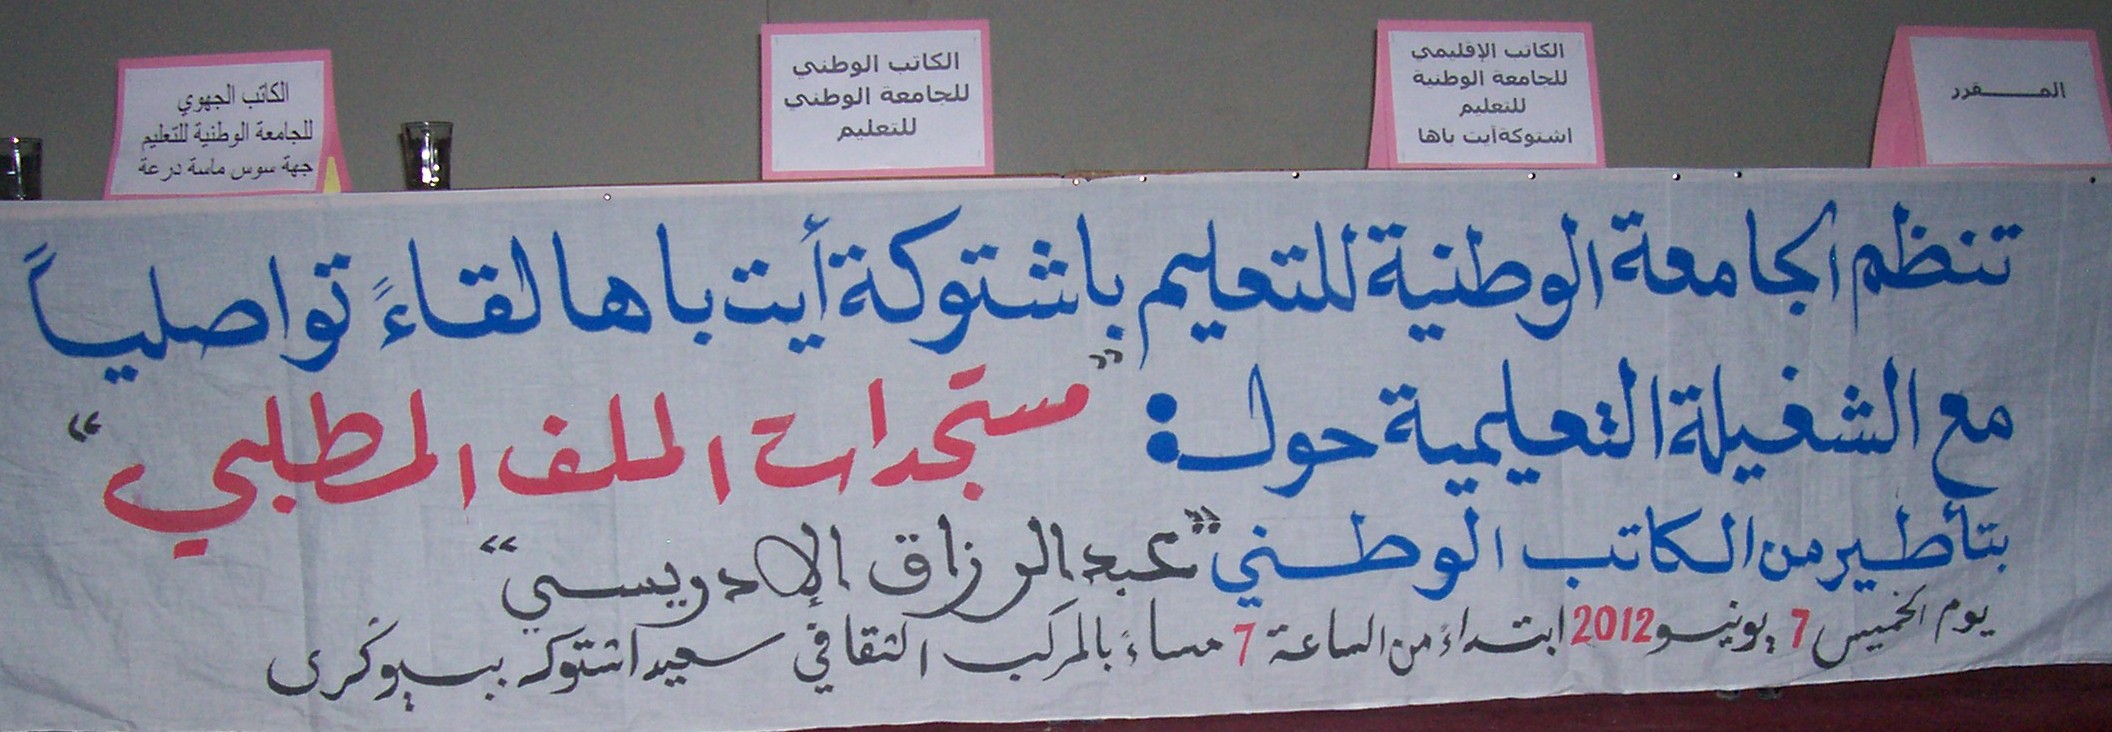 المـــقرر
الكاتب الإقليمي
للجامعة الوطنية
للتعليم
اشتوكةآيت باها
الكاتب الوطني
للجامعة الوطني
للتعليم
الكاتب الجهوي
للجامعة الوطنية للتعليم
جهة سوس ماسة درعة
تنظم الجامعة الوطنية للتعليم باشتوكة أيت باها لقاءً تواصلياً
مع الشغيلة التعليمية حول: "مستجدات الملف المطلبي"
بتأطير من الكاتب الوطني "عبد الرزاق الإدريسي"
يوم الخميس 7 يونيو 2012 ابتداءً من الساعة 7 مساءً بالمركب الثقافي سعيد اشتوك ببيوكرى